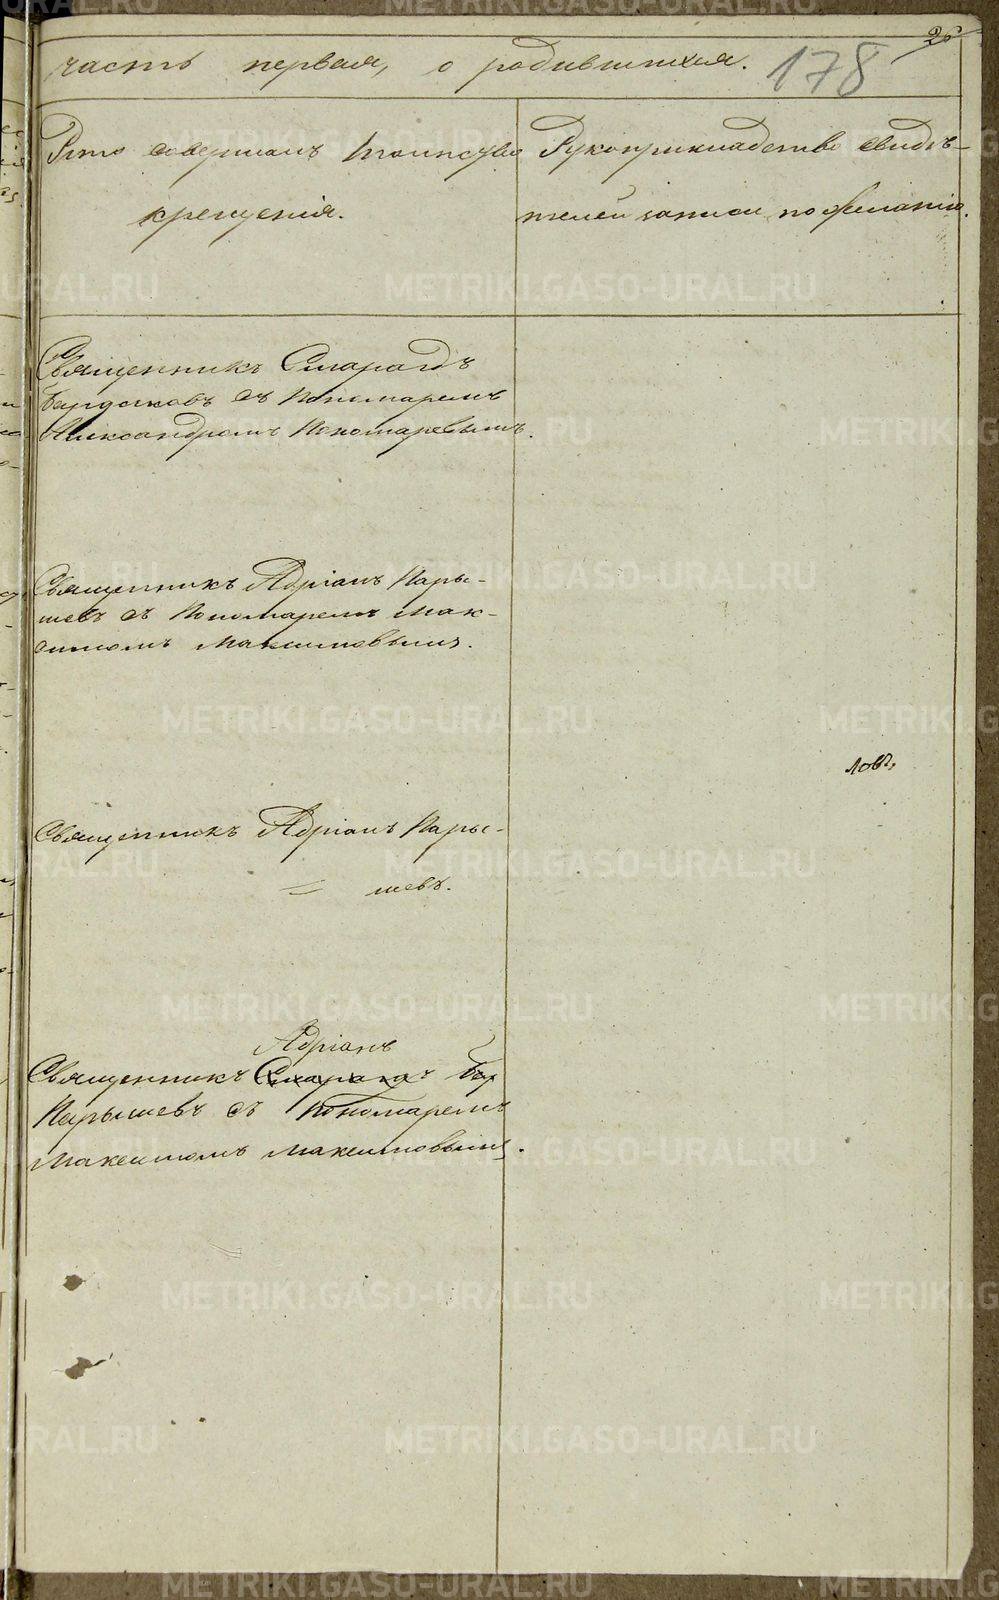 26
часть первая, о родившихся. 178
Кто совершалъ таинство
крещенія.
Рукоприкладство свидѣ-
телей записи по желанію.
Священникъ Смарагдъ
съ Пономаремъ
Александромъ Пономаревымъ.
Священникъ Адріанъ Пары-
шевъ съ Пономаремъ Мак-
симомъ Максимовымъ.
ловъ,
Священникъ Адріанъ Пары-
= шевъ.
Адріанъ
Священникъ Смарагдъ Бар
Парышевъ съ Пономаремъ
Максимомъ Максимовымъ.
METRIKI.GASO-URAL.RU